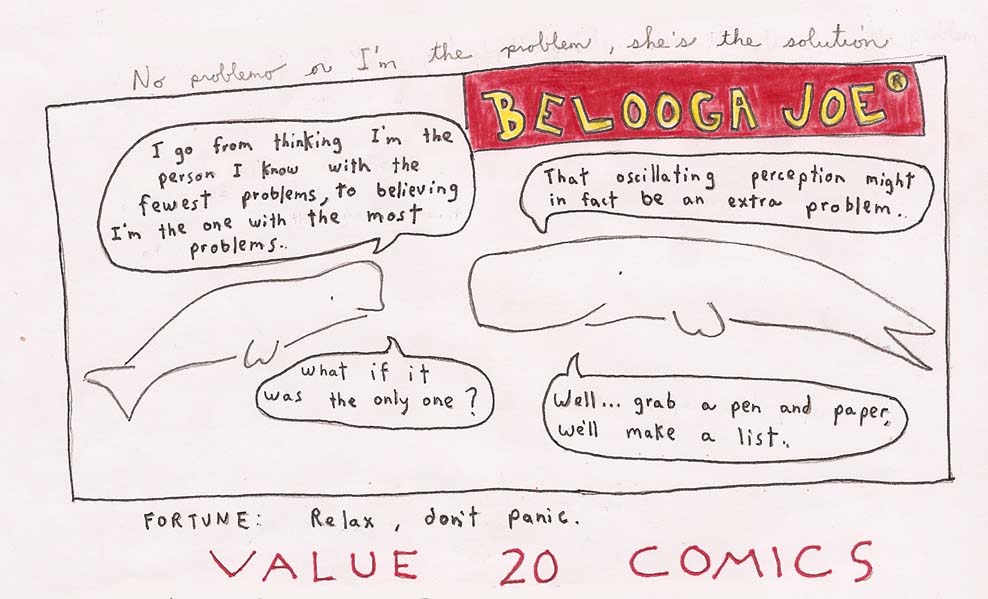 No problemo or I'm the problem, she's the solution
BELOOGA JOE®
I go from thinking I'm the
person I know with the
fewest problems, to believing
I'm the one with the most
problems..
That oscillating perception might
in fact be an extra problem..
What if it
was the only one?
Well... grab a pen and paper,
we'll make a list..
FORTUNE: Relax, don't panic.
VALUE 20 COMICS